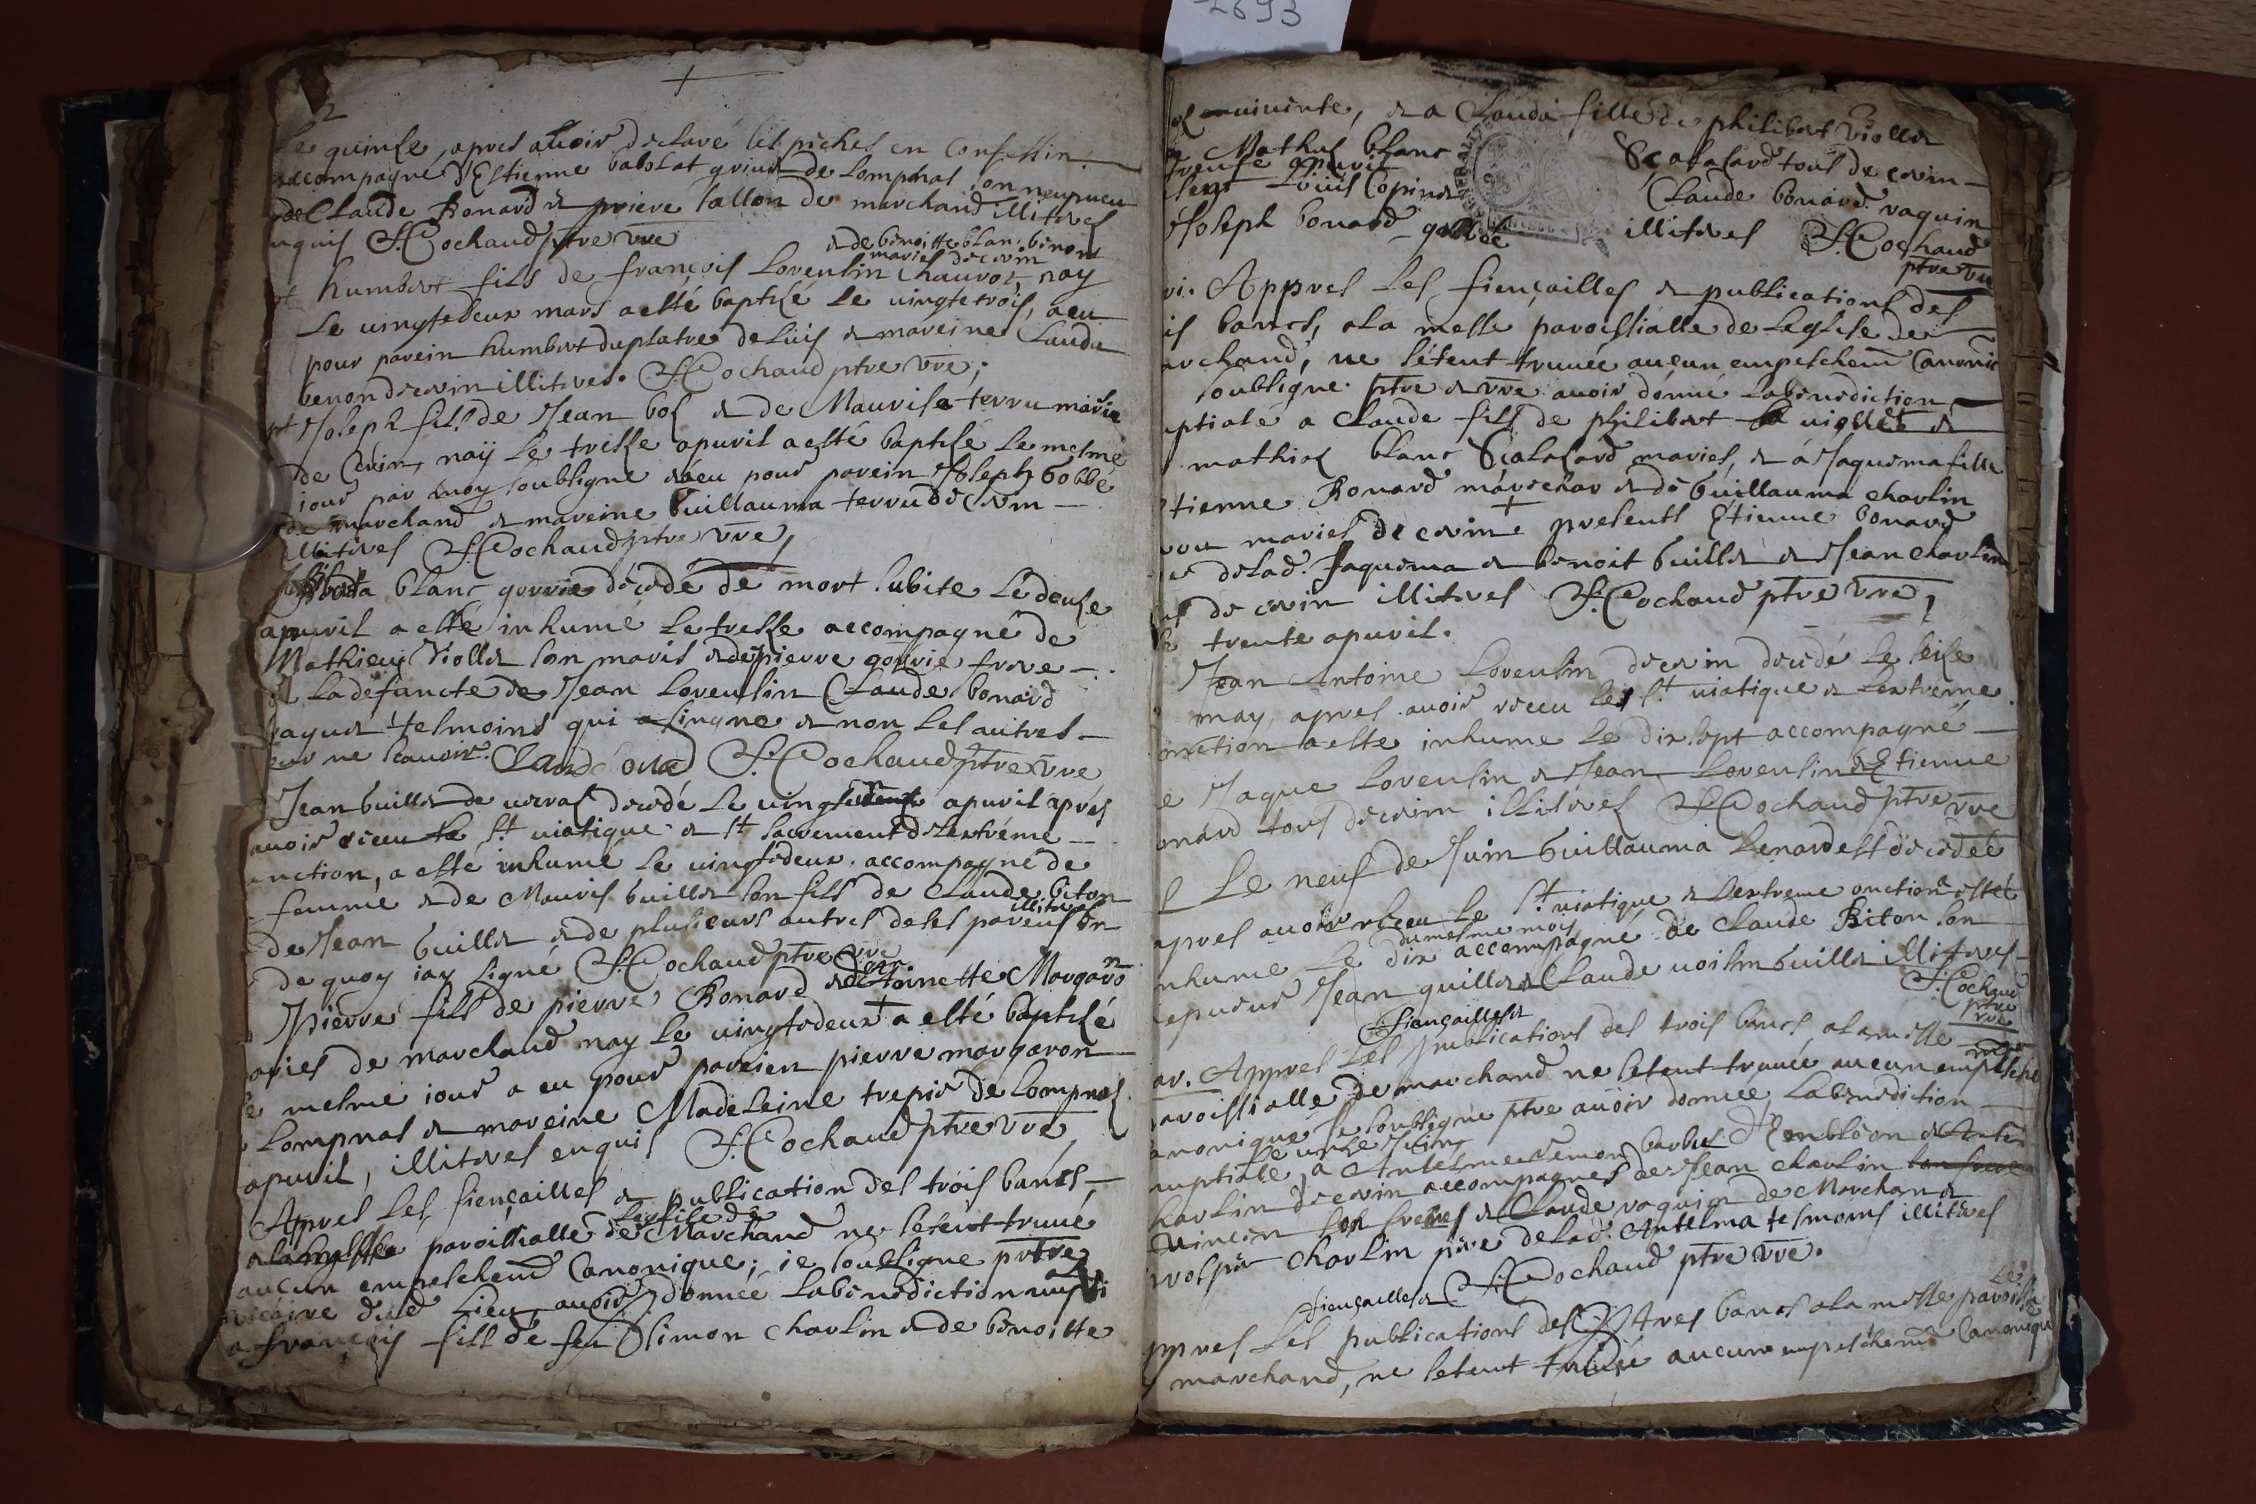 2693
2
le quinse, apres avoir declaré ses pechés en confession
accompagné d'Estienne babolat de Lompnas son nepveu
de Claude Bonard & de marchand illiteres
enquis J. Cochaud ptre vre
& de benoitte blanc benon
mariés de cerin
humbert fils de françois Lorensin Chauvot, nay
le vingtedeux mars a esté baptisé le vingtetrois, a eu
pour parein humbert duplatre de luis & mareine Clauda
benon de cerin illiteres. J. Cochaud ptre vre;
Joseph fils de Jean bos & de Maurise terru mariés
de Cerin, naÿ le tresse apuril a esté baptisé le mesme
jour par moy soubsigné & a eu pour parein Joseph Gobbé
de marchand & mareine Guillauma terru de Cerin
illiteres J. Cochaud ptre vre,
blanc gourie décedé de mort subite le douse
apuril a esté inhumé le tresse accompagné de
Mathieu Viollet son maris & de pierre gourie frere
de la defuncte de Jean Lorensin Claude bonard
vaquet tesmoins qui a singné & non les autres
pour ne scauoir. Claude J. Cochaud ptre vre
Jean Guillet de decedé le vingt apuril apres
avoir receu le St viatique & St sacrement de lextréme
onction, a esté inhumé le vingtedeux accompagné de
femme & de Mauris Guillet son fils de Claude biton
illiteres
de Jean Guillet & de plusieurs autres de ses parens en
de quoy iay signé J. Cochaud ptre vre
Pierre fils de pierre Bonard & de toinette Margaron
mariés de marchand nay le vingtedeux + a esté baptisé
le mesme jour a eu pour pareien pierre margaron
Lompnas & mareine Madeleine trepier de Lompnas
apuril, illiteres enquis J. Cochaud ptre vre
Appres les fiençailles & publication des trois bancs,
leglise de
a la messe paroissialle de Marchand ne sétent truué
aucun empeschemt Canonique; ie soubsigne prtre
vicaire dud lieu avoir donnée la bénédiction nupti
a françois fils de feu Simon Charlin & de benoitte
vivente, & a Clauda fille de philibert Viollet
& Mathia blanc Scalafard tous de cerin
trense apuril
Louis Copin & Claude bonard vaquin
Joseph bonard gobbé illiteres J. Cochaud
ptre vre
Appres les fiençailles & publications des
bancs, a la messe paroissialle de leglise de
marchand, ne sétent truuée aucun empeschemt Canonic
soubsigne ptre & vre avoir donné la bénédiction
nuptiale a Claude fils de philibert viollet &
mathias blanc Scalafard mariés, & á Jaquema fille
Etienne Bonard maréchar & de Guillauma Charlin
mariés de cerin + presents Etienne bonard
de lad. Jaquema & benoit Guillet & Jean Charlin
de cerin illiteres J. Cochaud ptre vre,
le trente apuril.
Jean Antoine Lorensin de cerin decedé le seise
may, apres avoir receu le St viatique & lextreme
onction a esté inhumé le dix sept accompagné
de Jaque Lorensin & Jean Lorensin & Etienne
bonard tous de cerin illiteres J. Cochaud ptre vre
Le neuf de Juin Guillauma Lenard est décedée
apres avoir receu le St viatique & lextreme onction & esté
du mesme mois
inhumé le dix accompagné de Claude Biton son
epoux Jean guillet & Claude voisin Guillet illiteres
J. Cochaud
ptre
vre
fiençailles &
Appres les publications des trois bancs, a la messe
paroissialle de marchand ne sétent truuée aucun empesche
mt
canonique Je soubsigne ptre avoir donnée la bénédiction
le unse Juing
nuptiale, a Antelme Semon barbet &
Charlin de cerin accompagnés de Jean Charlin son frere
Vincen son freres & Claude vaquin de Marchand &
Charlin père de lad. Antelma tesmoins illiteres
J. Cochaud ptre vre.
fiençailles &
Appres les publications des tres bancs a la messe paroissi
le
marchand, ne sétent truuée aucune empeschemt Canonique